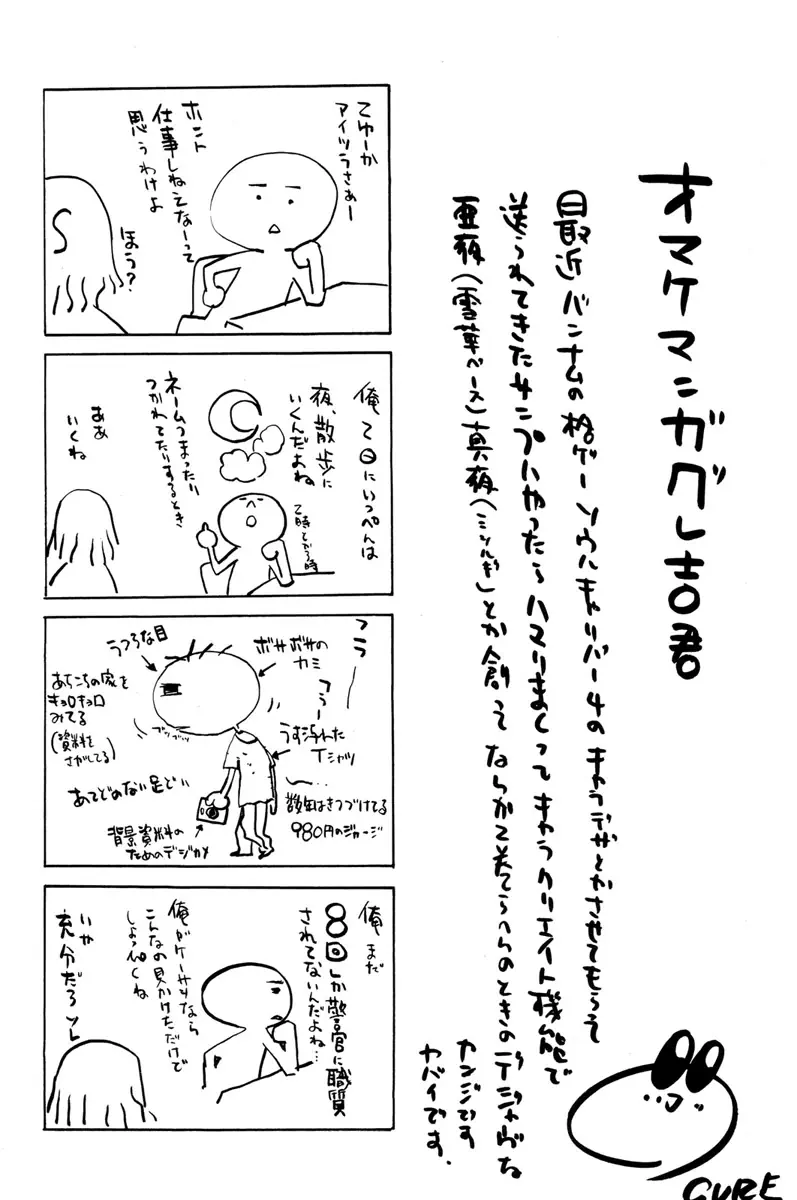 オマケマンガグレ吉君
最近バンナムの格ゲーソウルキャリバー4のキャラデザとかさせてもらって
送られてきたサンプルやったらハマりまくってキャラクリエイト機能で
亜夜(雪華ベース)真夜(ミツルギ)とか創って
ならべて
のときのデジャヴな
カンジです
ヤバイです.
CURE
てゆーか
アイツらさぁー
ホント
仕事しねぇなーって
思うわけよ
ほう?
S
俺て日にいっぺんは
夜、散歩に
いくんだよね
ネームつまったり
つかれてたりするとき
ああ
いくね
フラ
フラー
ボサボサの
カミ
うつろな目
うす汚れた
Tシャツ
あちこちの家を
キョロキョロ
みてる
(資料を
さがしてる)
ブツブツ
あてどのない足どり
数年はきつづけてる
980円のジャージ
背景資料の
ためのデジカメ
俺まだ
8回しか警官に職質
されてないんだよね…
俺がケーサツなら
こんなの見かけただけで
しょっぴくね
いや
充分だろソレ